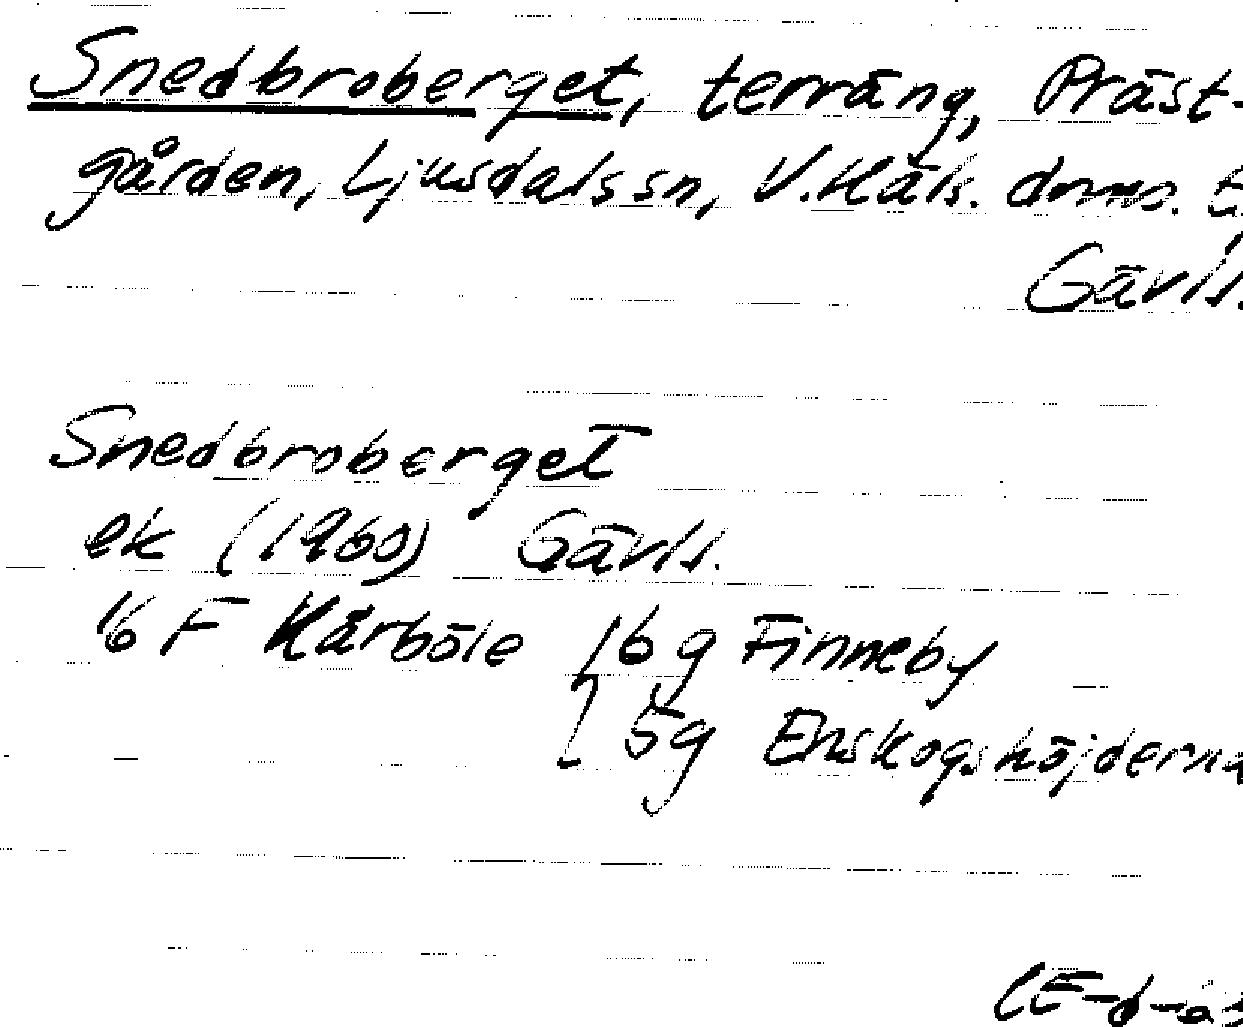 Snedbroberget, terräng, Präst-
gården, Ljusdalssn, V. Häls. doms.
Gävls.
Snedbroberget
ek (1960) Gävls.
16 F Kårböle 16 g Finneby
5g Enskogshöjderna